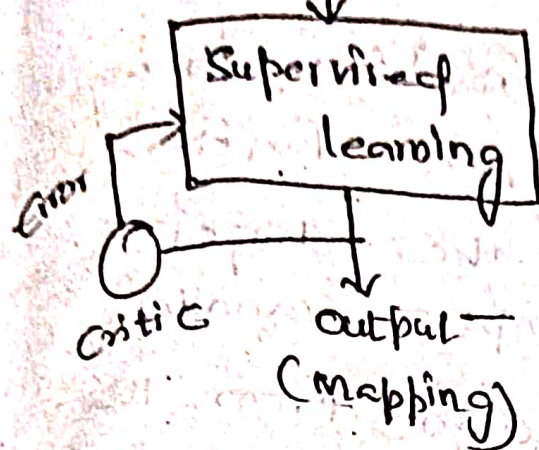 Supervised
learning
Error
Critic
output
(Mapping)